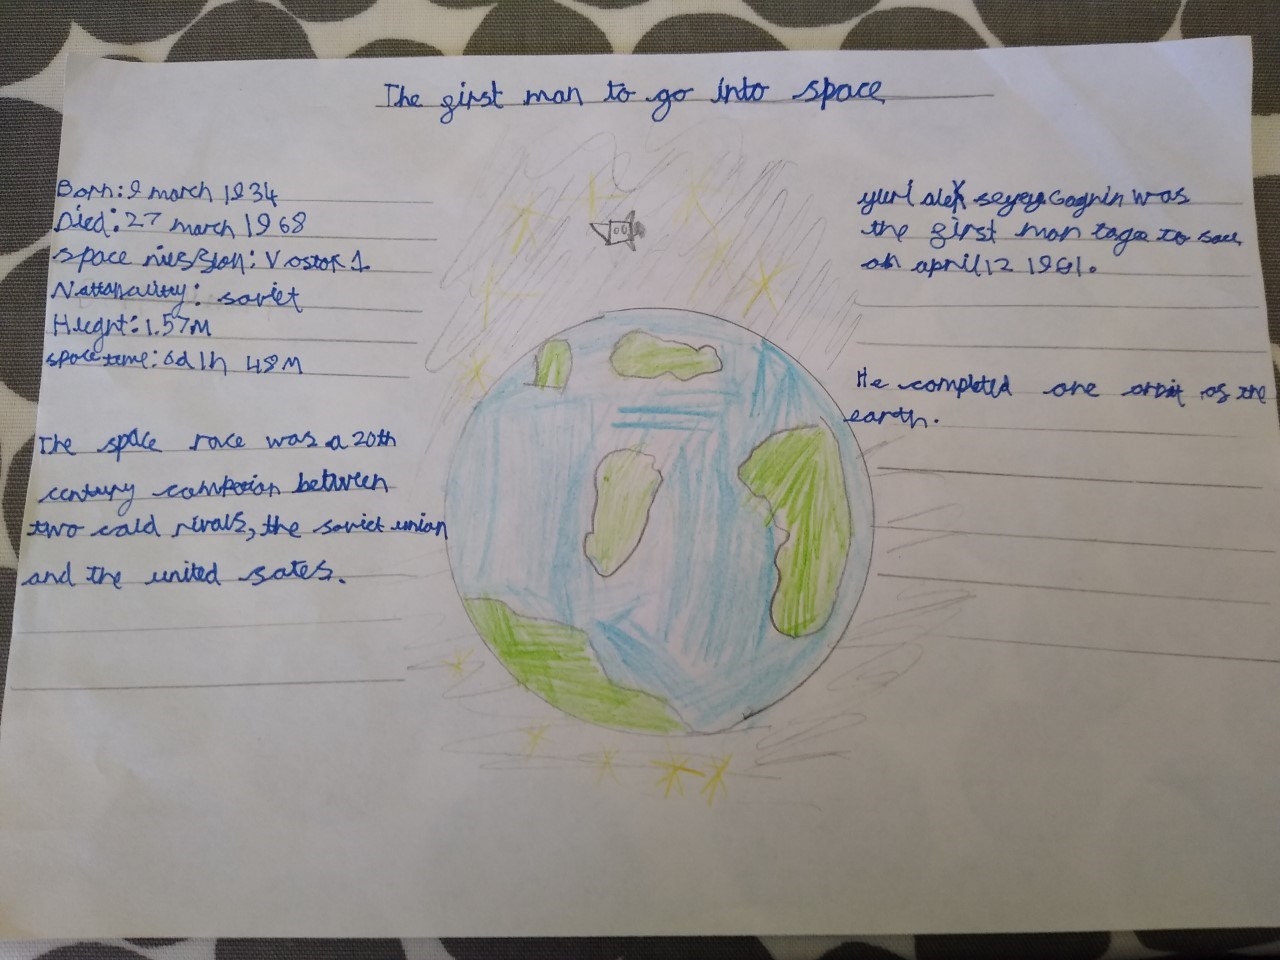 The first man to go into space
Born: 9 march 1934
Died: 27 march 1968
space mission: Vostok 1
Nationality: soviet
Height: 1.57M
space time: 0d 1h 48M
The space race was a 20th
century
between
two cold rivals, the soviet union
and the united sates.
yuri alek seyey Gagnin was
the first man to
on april 12 1961.
He completed one orbit of the
earth.